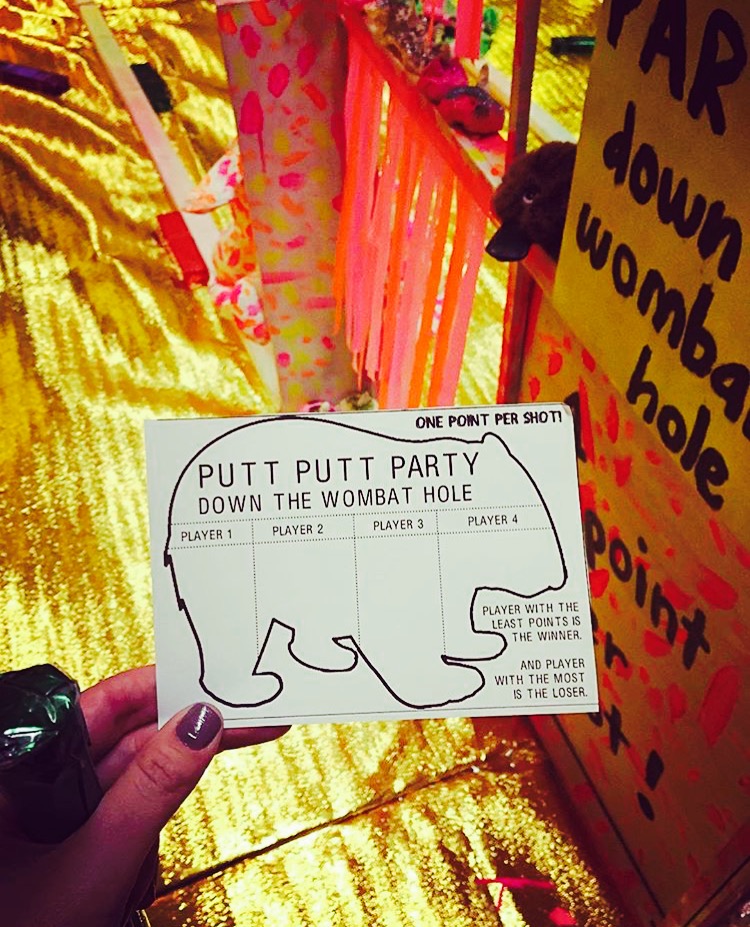 ONE POINT PER SHOT!
PUTT PUTT PARTY
DOWN THE WOMBAT HOLE
PLAYER 1 PLAYER 2 PLAYER 3 PLAYER 4
PLAYER WITH THE
LEAST POINTS IS
THE WINNER.
AND PLAYER
WITH THE MOST
IS THE LOSER.
down
hole
point